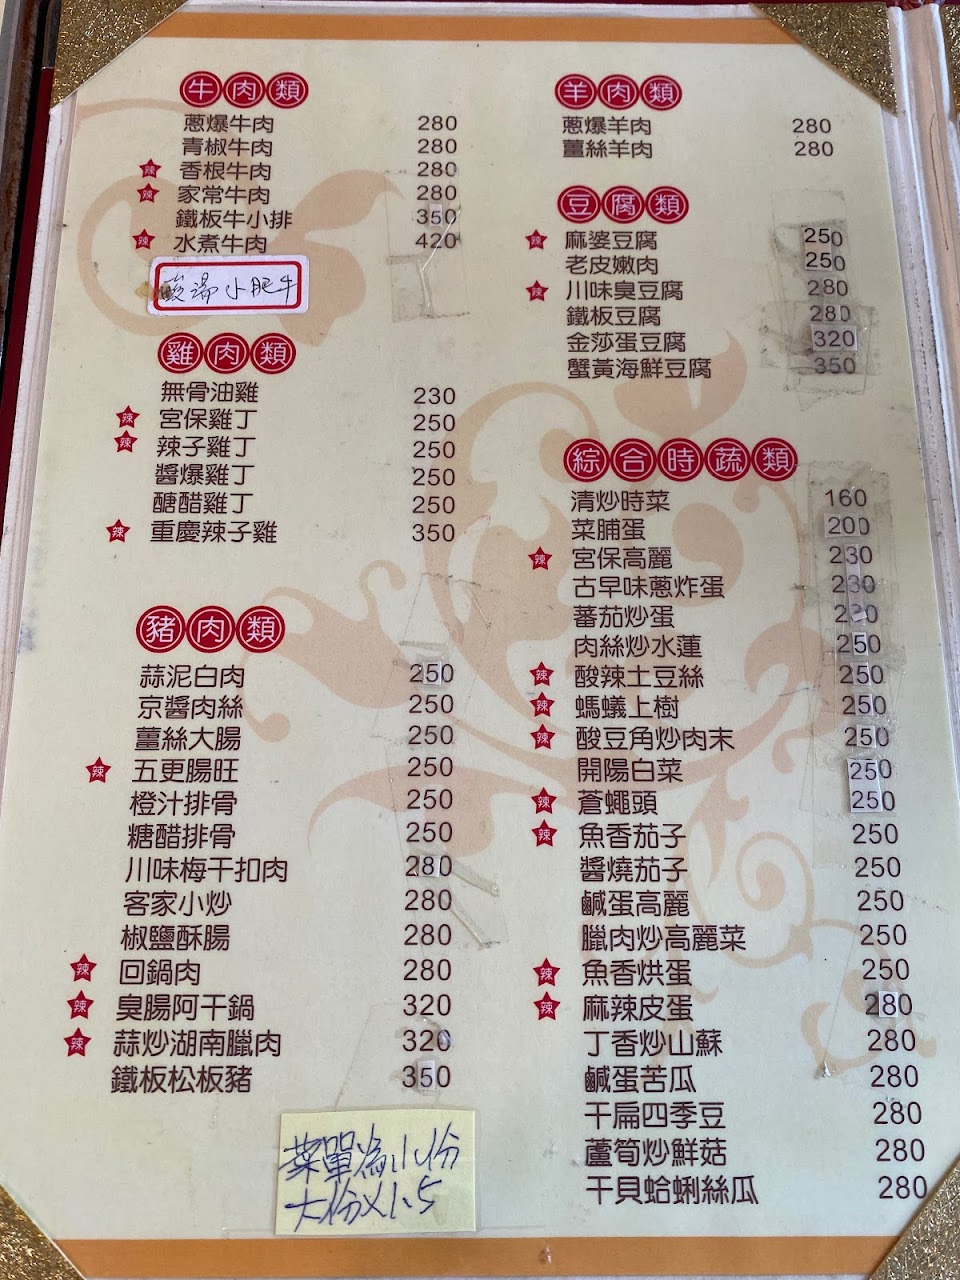 牛肉類
蔥爆牛肉 280
青椒牛肉 280
辣 香根牛肉 280
辣 家常牛肉 280
鐵板牛小排 350
辣 水煮牛肉 420
酸湯小肥牛
雞肉類
無骨油雞 230
辣 宮保雞丁 250
辣 辣子雞丁 250
醬爆雞丁 250
醣醋雞丁 250
辣 重慶辣子雞 350
豬肉類
蒜泥白肉 250
京醬肉絲 250
薑絲大腸 250
辣 五更腸旺 250
橙汁排骨 250
糖醋排骨 250
川味梅干扣肉 280
客家小炒 280
椒鹽酥腸 280
辣 回鍋肉 280
辣 臭腸阿干鍋 320
辣 蒜炒湖南臘肉 320
鐵板松板豬 350
菜單為小份
大份x1.5
羊肉類
蔥爆羊肉 280
薑絲羊肉 280
豆腐類
辣 麻婆豆腐 250
老皮嫩肉 250
辣 川味臭豆腐 280
鐵板豆腐 280
金莎蛋豆腐 320
蟹黃海鮮豆腐 350
綜合時蔬類
清炒時菜 160
菜脯蛋 200
辣 宮保高麗 230
古早味蔥炸蛋 230
蕃茄炒蛋 230
肉絲炒水蓮 250
辣 酸辣土豆絲 250
辣 螞蟻上樹 250
辣 酸豆角炒肉末 250
開陽白菜 250
辣 蒼蠅頭 250
辣 魚香茄子 250
醬燒茄子 250
鹹蛋高麗 250
臘肉炒高麗菜 250
辣 魚香烘蛋 250
辣 麻辣皮蛋 280
丁香炒山蘇 280
鹹蛋苦瓜 280
干扁四季豆 280
蘆筍炒鮮菇 280
干貝蛤蜊絲瓜 280